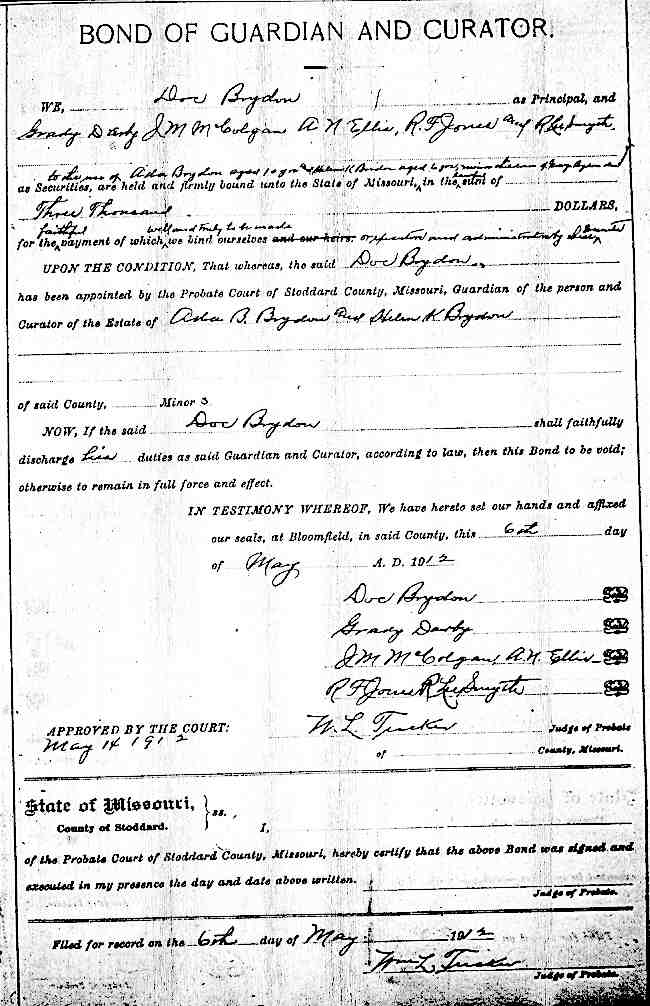 BOND OF GUARDIAN AND CURATOR.
WE, Doc Brydon as Principal, and
Grady Darby J M McColgan A N Ellis, R. F Jones and R Lee Smyth
to the use of Ada Brydon aged and Helen K Brydon aged
as Securities, are held and firmly bound unto the State of Missouri, in the sum of
Three Thousand DOLLARS,
faithful well and truly to be made
for the payment of which, we bind ourselves and our heirs.
UPON THE CONDITION, That whereas, the said Doc Brydon
has been appointed by the Probate Court of Stoddard County, Missouri, Guardian of the person and
Curator of the Estate of Ada B. Brydon and Helen K Brydon
of said County, Minor s
NOW, If the said Doc Brydon shall faithfully
discharge his duties as said Guardian and Curator, according to law, then this Bond to be void;
otherwise to remain in full force and effect.
IN TESTIMONY WHEREOF, We have hereto set our hands and affixed
our seals, at Bloomfield, in said County, this 6th day
of May A. D. 1912
Doc Brydon
Grady Darby
J M McColgan, A. N. Ellis
R F Jones R Lee Smyth
APPROVED BY THE COURT: W. L Tucker Judge of Probate
May 14 1912 of County, Missouri.
State of Missouri, } ss.
County of Stoddard. I,
of the Probate Court of Stoddard County, Missouri, hereby certify that the above Bond was signed and
executed in my presence the day and date above written.
Judge of Probate.
Filed for record on the 6th day of May 1912
Wm L Tucker
Judge of Probate.